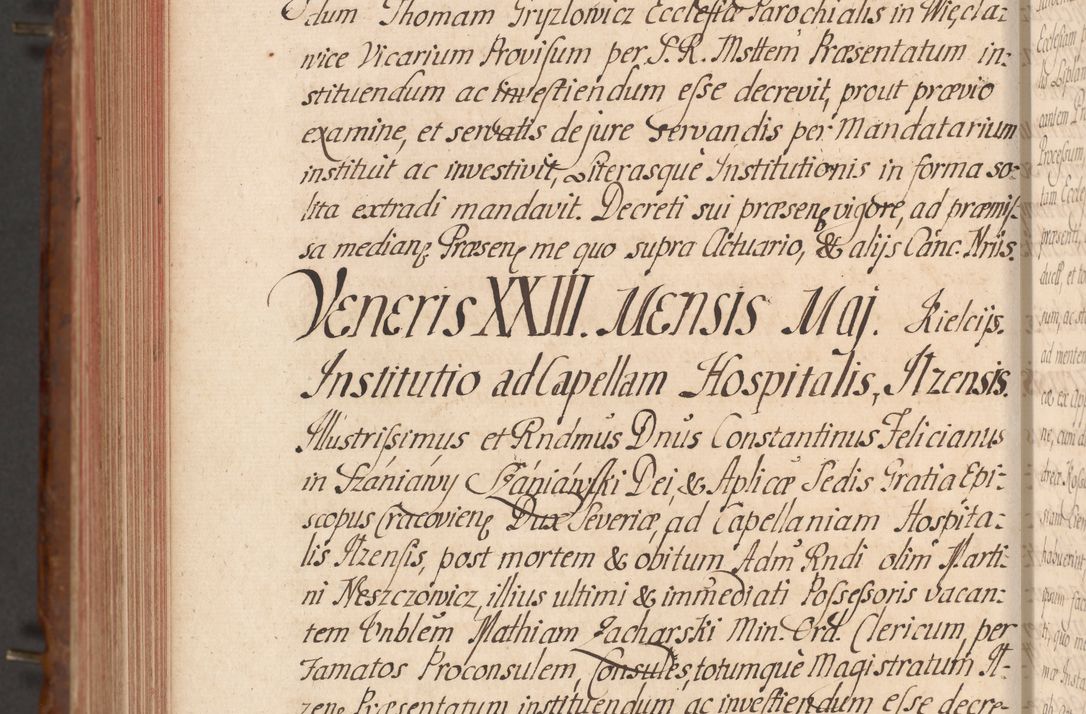 dum Thomam Gryzlowicz Ecclesiæ Parochialis in Więcła=
wice Vicarium Provisum per P. R. Msttem Præsentatum in=
stituendum ac investiendum esse decrevit, prout prævio
examine, et servatis de jure servandis per Mandatarium
instituit ac investivit, Literasquè Institutionis in forma so=
lita extradi mandavit. Decreti sui præsenę vigore, ad præmis=
sa medianę. Præsenę me quo supra Actuario, & alijs Canc. Nriis.
Veneris XXIII. Mensis Maj. Kielcijs.
Institutio ad Capellam Hospitalis, Ilzensis.
Illustrissimus et Rndmus Dnus Constantinus Felicianus
in Szániáwy Szániáwski Dei, & Aplicæ Sedis Gratia Epi=
scopus Cracovienę Dux Severiæ, ad Capellaniam Hospita=
lis Ilzensis, post mortem & obitum Adm Rndi olim Marti=
ni Neszczowicz, illius ultimi & immediati Possessoris vacan=
tem Vnblem Mathiam Zacharski Min. Ord. Clericum, per
Famatos Proconsulem, Consules, totumquè Magistratum Il=
zenę Præsentatum instituendum ac investiendum esse decre=